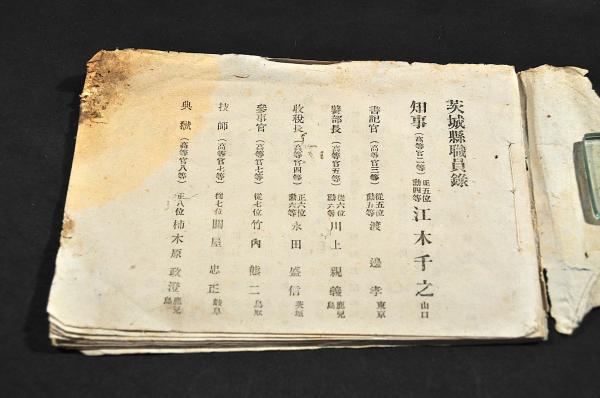 茨城縣職員錄
知事（高等官二等）正五位勳四等 江木千之 山口
書記官（高等官三等）從五位勳五等 渡邊孝 東京
警部長（高等官五等）從六位勳六等 川上親義 鹿兒島
收稅長（高等官四等）正六位勳六等 永田盛信 茨城
參事官（高等官七等）從七位 竹內熊二 鳥取
技師（高等官七等）從七位 關屋忠正 岐阜
典獄（高等官八等）正八位 柿木原政澄 鹿兒島